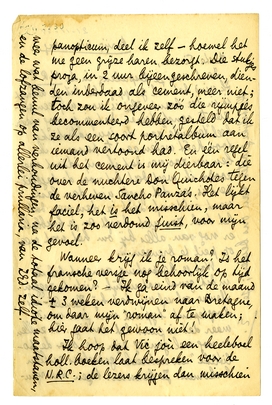 panopticum, deel ik zelf – hoewel het
me geen grijze haren bezorgt. Die stukjes
proza, in 2 uur bijeengeschreven, dien-
den inderdaad als cement, meer niet;
toch zou ik ongeveer zóó die rijmpjes
becommenteerd hebben, gesteld dat ik
ze als een soort portretalbum aan
iemand vertoond had. En één regel
uit het cement is mij dierbaar: die
over de nuchtere Don Quichotes tegen
de verheven Sancho Panza's. Het lijkt
faciel, het is het misschien, maar
het is zoo verdomd juist, voor mijn
gevoel.
Wanneer krijg ik je roman? Is het
fransche versje nog behoorlijk op tijd
gekomen? – Ik ga eind van de maand
± 3 weken verdwijnen naar Bretagne,
om daar mijn "roman" af te maken;
hier gaat het gewoon niet!
Ik hoop dat Vic jou een heeleboel
holl. boeken laat bespreken voor de
N.R.C.; de lezers krijgen dan misschien
weer wat benul van verhoudingen, na de totaal idiote maatstaven,
en de lofzangen op allerlei prullaria van